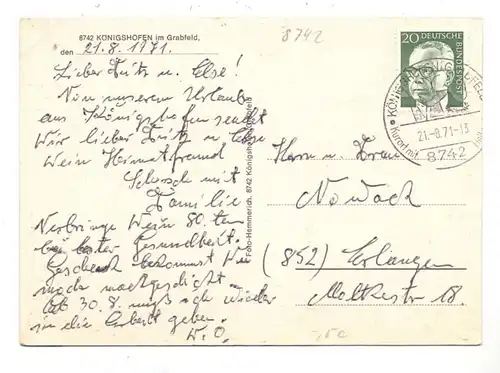 8742 KÖNIGSHOFEN im Grabfeld,
den 21.8.1971.
8742
Lieber Fritz u. Else!
Von unserem Urlaube
aus Königshofen sendet
Wir lieber Fritz u. Else
Dein Heimatfreund
Schorsch mit
Familie
Verbringe Dein 80.ten
bei bester Gesundheit.
Geschenk bekommst Du
noch nachgeschickt.
Ab 30.8. muß ich wieder
in die Arbeit gehen.
W.O.
Foto-Hemmerich, 8742 Königshofen/Grabfeld
20 DEUTSCHE BUNDESPOST
21.-8.71-13
8742
Herrn u. Frau
Nowack
(852) Erlangen
Moltkestr 18.